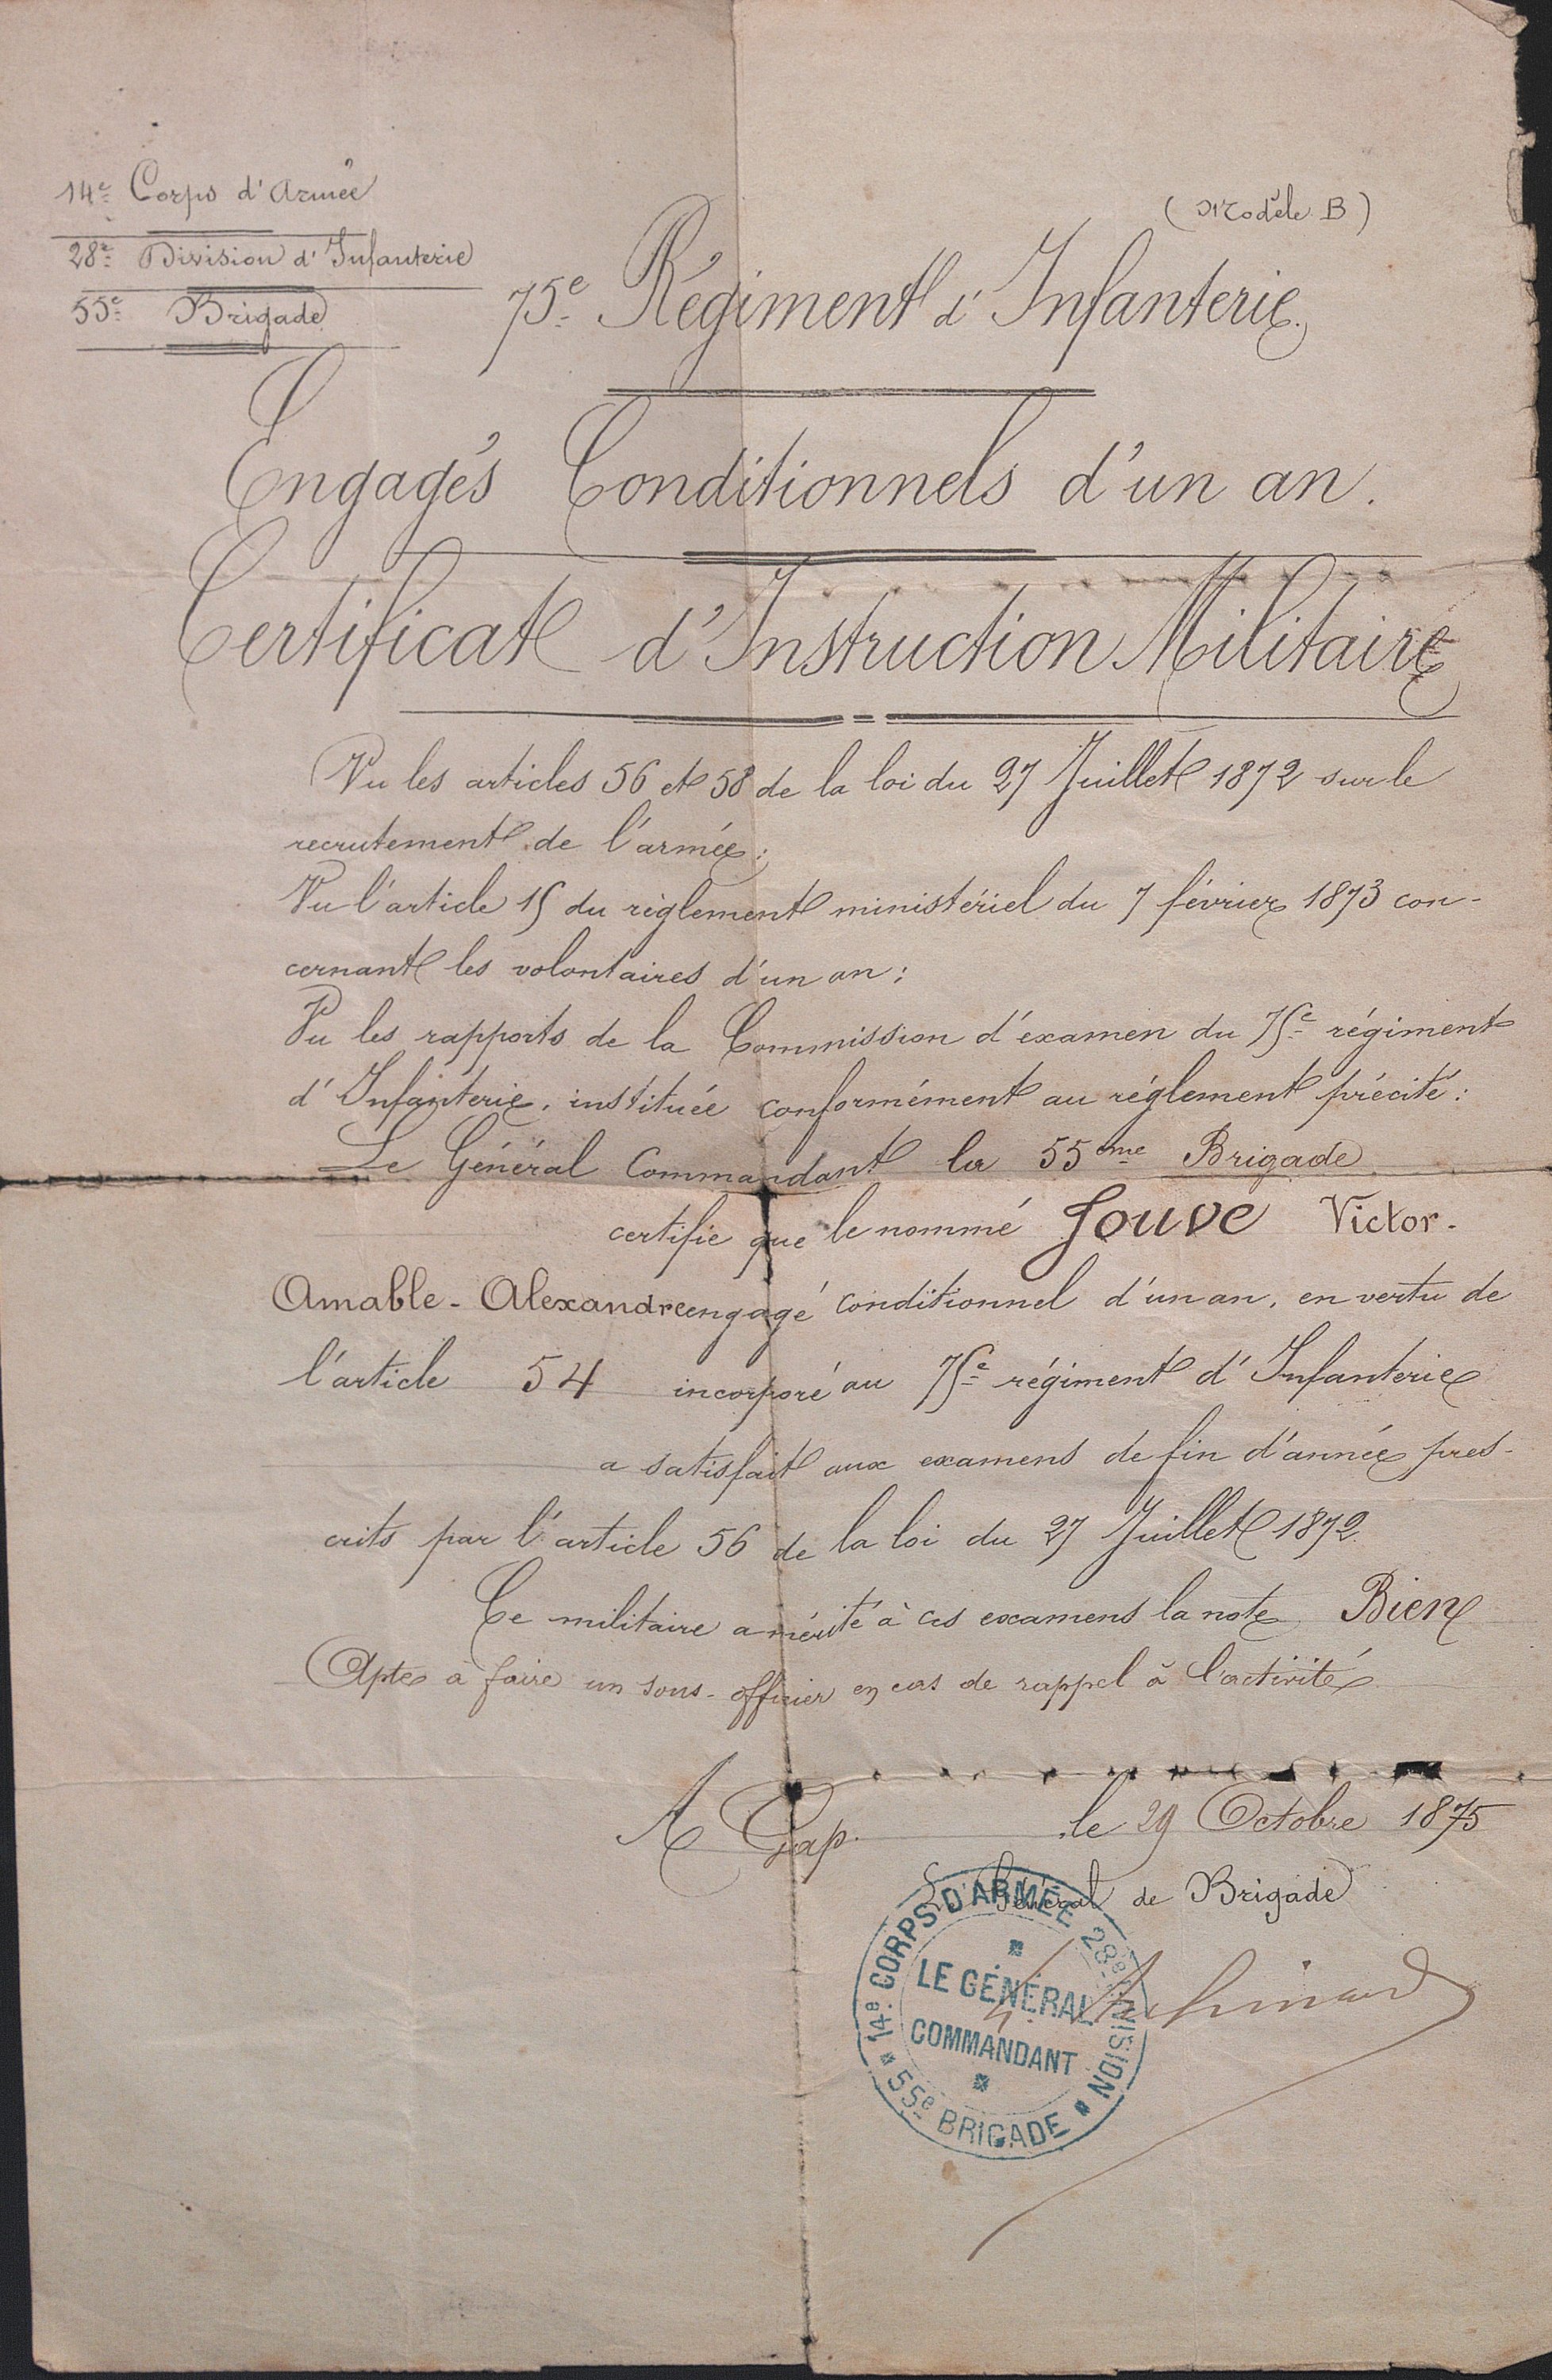 14e Corps d'Armée
28e Division d'Infanterie
55e Brigade
(Modèle B)
75e Régiment d'Infanterie
Engagés Conditionnels d'un an.
Certificat d'Instruction Militaire
Vu les articles 56 et 58 de la loi du 27 Juillet 1872 sur le
recrutement de l'armée;
Vu l'article 15 du règlement ministériel du 7 février 1873 con-
cernant les volontaires d'un an;
Vu les rapports de la Commission d'examen du 75e régiment
d'Infanterie, instituée conformément au réglement précité:
Le Général Commandant la 55eme Brigade
certifie que le nommé Jouve Victor-
Amable-Alexandre engagé conditionnel d'un an, en vertu de
l'article 54 incorporé au 75e régiment d'Infanterie
a satisfait aux examens de fin d'année pres-
crits par l'article 56 de la loi du 27 Juillet 1872
Ce militaire a mérité à ces examens la note Bien
Apte à faire un sous-officier en cas de rappel à l'activité
A Gap. le 29 Octobre 1875
Le Général de Brigade
14e CORPS D'ARMÉE 28e DIVISION
LE GÉNÉRAL
COMMANDANT
55e BRIGADE